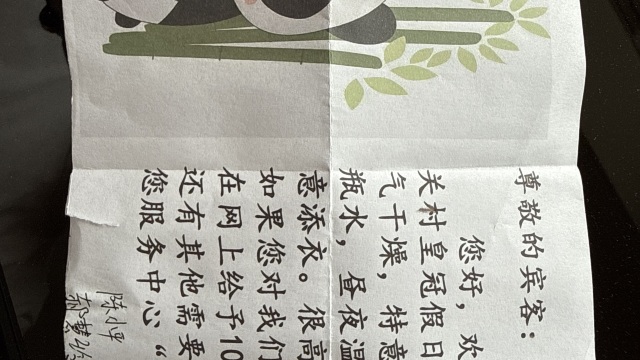 尊敬的宾客：
您好，欢
关村皇冠假日
气干燥，特意
瓶水，昼夜温
意添衣。很高
如果您对我们
在网上给予10
还有其他需要
您服务中心“
陈小
郝慧